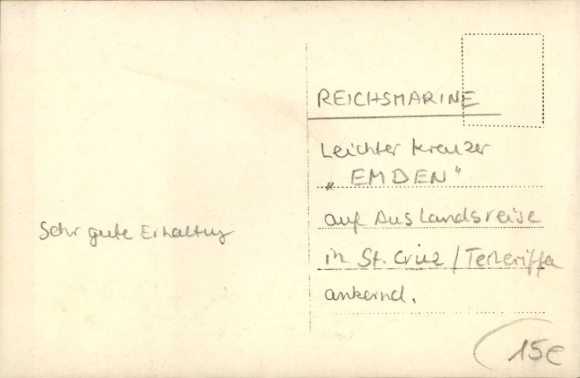 REICHSMARINE
Leichter Kreuzer
„EMDEN"
auf Auslandsreise
in St. Cruz / Teneriffa
ankernd.
Sehr gute Erhaltung
15€